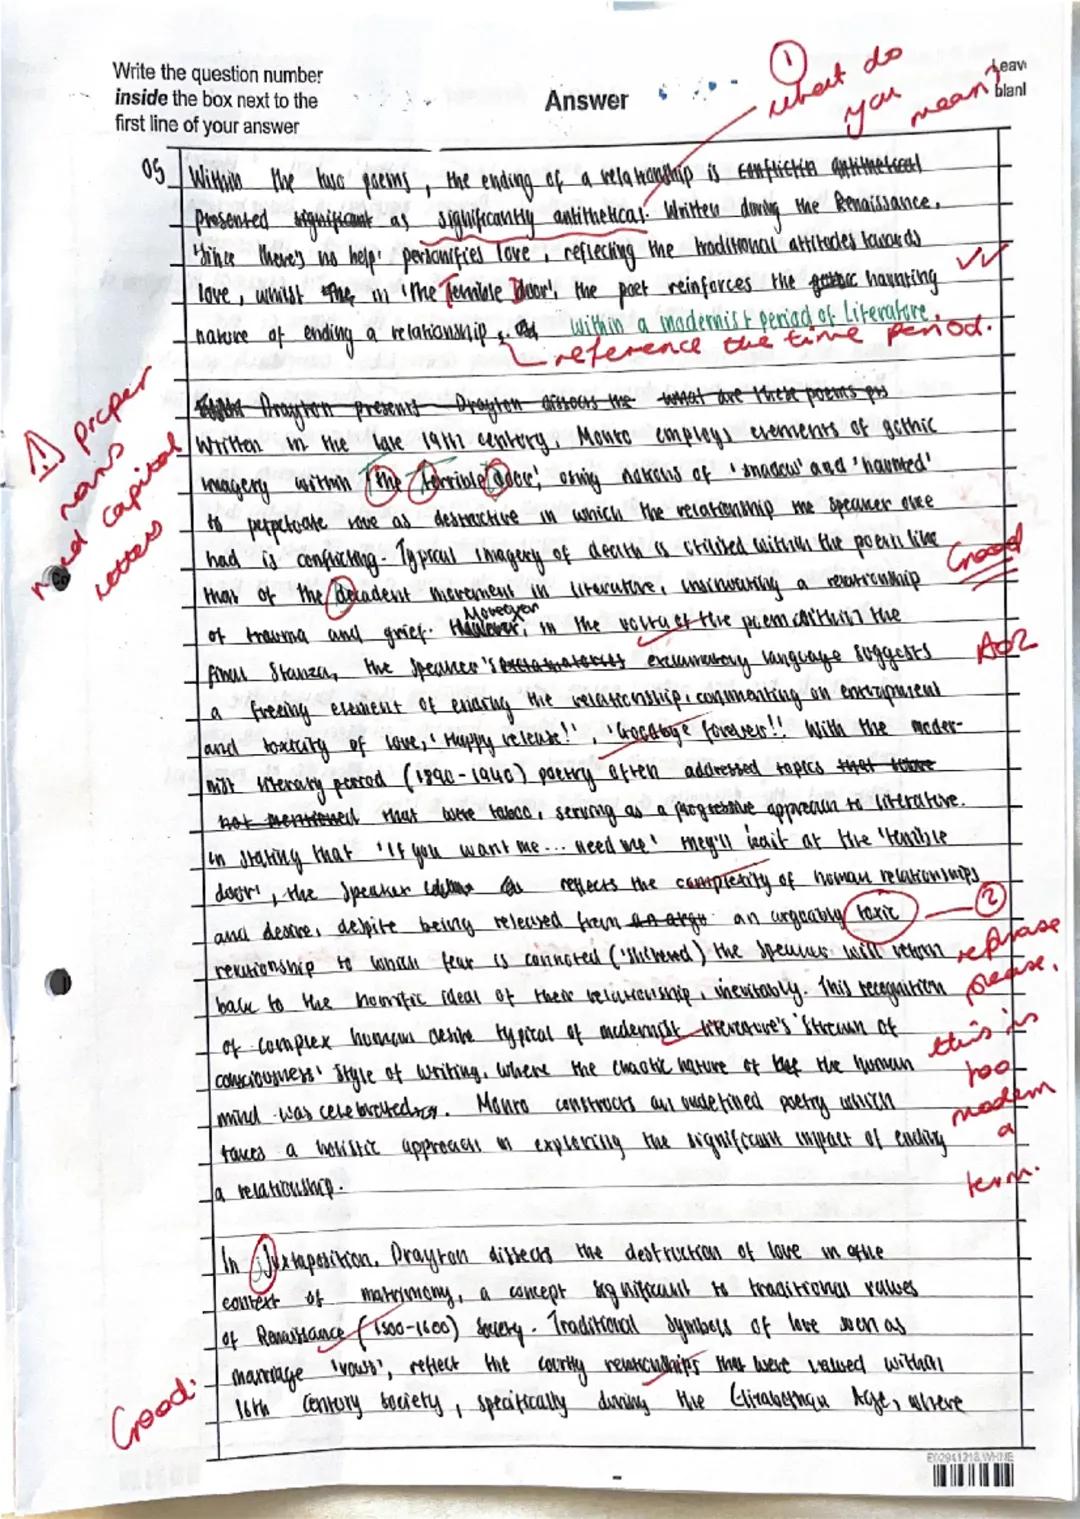 Write the question number
inside the box next to the
first line of your answer
Answer
Leave
blank
① what do
you
mean?
05 Within the two poems, the ending of a relationship is conflictin antithetical
presented significant as significantly antithetical. Written during the Renaissance,
'Since there's no help' personifies love, reflecting the traditional attitudes towards
love, whilst the in 'The Terrible Door', the poet reinforces the gothic haunting
nature of ending a relationship within a modernist period of literature.
reference the time period.
⚠ proper
nouns
need capital
letters
Drayton presents Drayton dissects the what are these poems
Written in the late 19th century, Monro employs elements of gothic
imagery within 'the terrible door', using notions of 'shadow' and 'haunted'
to perpetuate love as destructive in which the relationship the speaker once
had is conflicting. Typical imagery of death is utilised within the poem like
Good
that of the decadent movement in literature, insinuating a relationship
of trauma and grief. However, Moreover, in the volta of the poem within the
final stanza, the speaker's exclamatory language suggests
AO2
a freeing element of ending the relationship, commenting on entrapment
and toxicity of love, 'Happy release!', 'Goodbye forever!! With the moder-
nist literary period (1890-1940) poetry often addressed topics that were
not mentioned that were taboo, serving as a progressive approach to literature.
In stating that 'If you want me... need me' they'll wait at the 'terrible
door', the speaker reflects the complexity of human relationships
and desire, despite being released from an argu an arguably toxic
② rephrase
please,
this is
too
modern
a
term.
relationship to which fear is connoted ('shivered') the speaker will return
back to the horrific ideal of their relationship, inevitably. This recognition
of complex human desire typical of modernist literature's 'stream of
consciousness' style of writing, where the chaotic nature of the the human
mind was celebrated. Monro constructs an undefined poetry which
takes a holistic approach in exploring the significant impact of ending
a relationship.
In Juxtaposition, Drayton dissects the destruction of love in the
context of matrimony, a concept significant to traditional values
of Renaissance (1500-1600) society. Traditional symbols of love such as
marriage 'vows', reflect the courtly relationships that were valued within
Good.
16th Century society, specifically during the Elizabethan Age, where